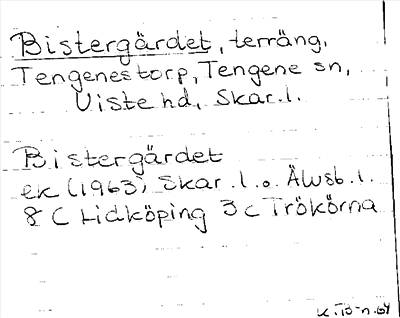 Bistergärdet, terräng,
Tengenestorp, Tengene sn,
Viste hd, Skar.l.
Bistergärdet
ek (1963) Skar.l.o. Älvsb.l.
8 C Lidköping 3 c Trökörna